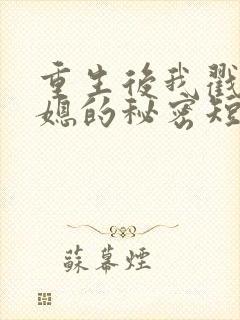 重生後我戳
媳的秘密短
蘇幕煙